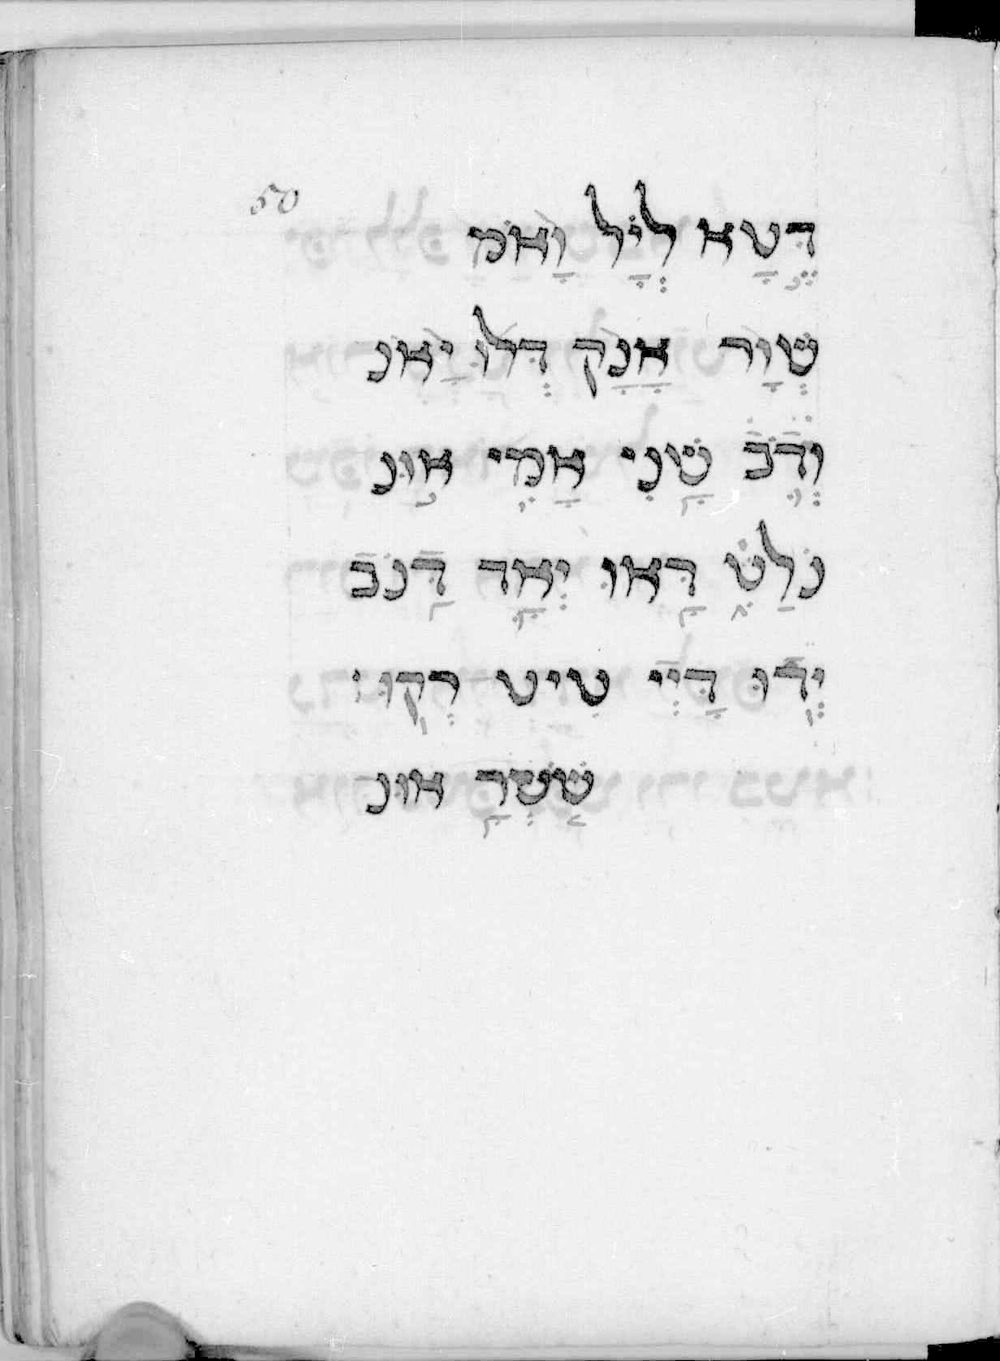 50
דֱּטָא לְיָל וָאמ
שְׁוָר אָנָק דְּלוּ יָאנ
וְדְב שָׁנִי אָמִי אוּנ
נלַשׁ דָּאוּ יְאָד דָנב
יְדוּ דָּיְי טִיט רְקוּ׃
שַׁשְׁרָ אונ